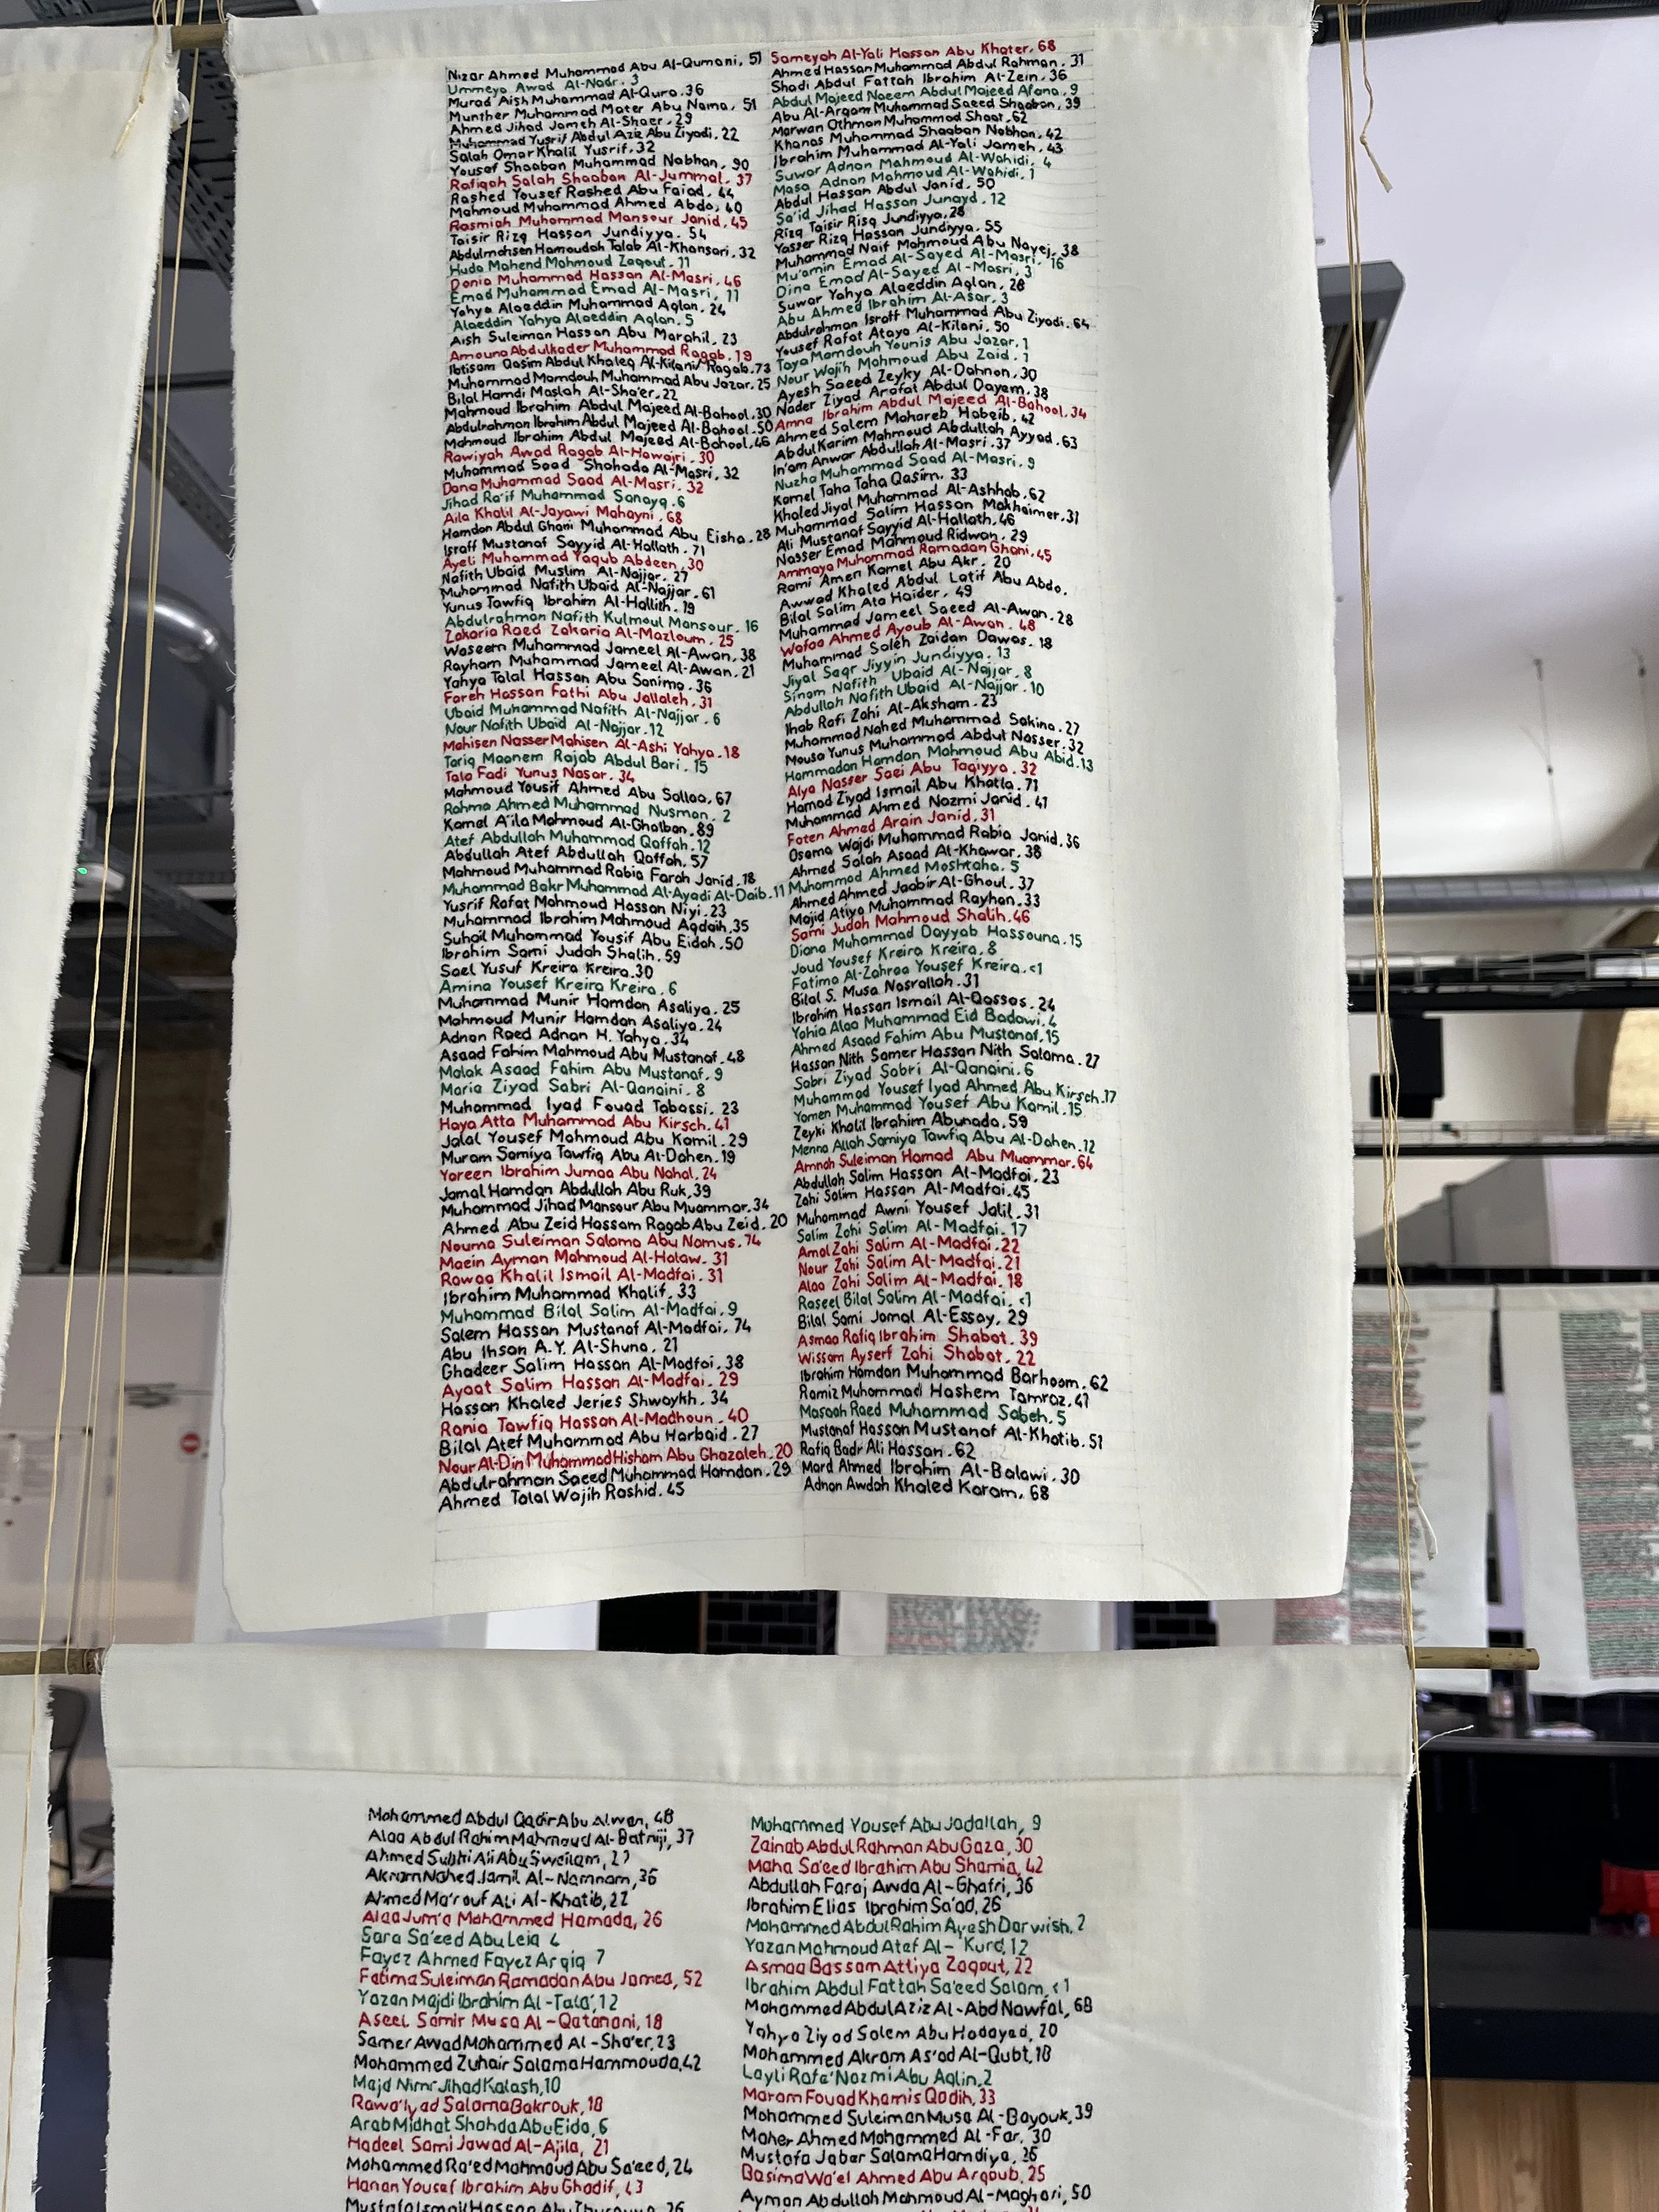 Nizar Ahmed Muhammad Abu Al-Qumani, 51
Ummeya Awad Al-Nadr. 3
Murad Aish Muhammad Al-Qura. 36
Munther Muhammad Mater Abu Nama, 51
Ahmed Jihad Jameh Al-Shaer. 29
Muhammad Yusrif Abdul Aziz Abu Ziyadi. 22
Salah Omar Khalil Yusrif. 32
Yousef Shaaban Muhammad Nabhan, 90
Rafiqah Salah Shaaban Al-Jummal, 37
Rashed Yousef Rashed Abu Faiad, 44
Mahmoud Muhammad Ahmed Abda, 40
Rasmiah Muhammad Mansour Janid, 45
Taisir Rizq Hassan Jundiyya. 54
Abdulmohsen Hamoudah Talab Al-Khansari. 32
Huda Mahend Mahmoud Zaqout. 11
Donia Muhammad Hassan Al-Masri, 46
Emad Muhammad Emad Al-Masri, 11
Yahya Alaeddin Muhammad Aqlan. 24
Alaeddin Yahya Alaeddin Aqlan. 5
Aish Suleiman Hassan Abu Marahil, 23
Amouna Abdulkader Muhammad Ragab. 19
Ibtisam Qasim Abdul Khaleq Al-Kilani/Ragab. 73
Muhammad Mamdouh Muhammad Abu Jazar. 25
Bilal Hamdi Maslah Al-Sha'er. 22
Mahmoud Ibrahim Abdul Majeed Al-Bahool. 30
Abdulrahman Ibrahim Abdul Majeed Al-Bahool. 50
Mahmoud Ibrahim Abdul Majeed Al-Bahool. 46
Rawiyah Awad Ragab Al-Hawajri. 30
Muhammad Saad Shahada Al-Masri, 32
Dana Muhammad Saad Al-Masri. 32
Jihad Ra'if Muhammad Sanayq. 6
Aila Khalil Al-Jayawi Mahayni. 68
Hamdan Abdul Ghani Muhammad Abu Eisha. 28
Israff Mustanaf Sayyid Al-Hallath. 71
Ayeli Muhammad Yaqub Abdeen. 30
Nafith Ubaid Muslim Al-Najjar. 27
Muhammad Nafith Ubaid Al-Najjar. 61
Yunus Tawfiq Ibrahim Al-Hallith. 19
Abdulrahman Nafith Kulmoul Mansour. 16
Zakaria Raed Zakaria Al-Mazloum. 25
Waseem Muhammad Jameel Al-Awan. 38
Rayham Muhammad Jameel Al-Awan. 21
Yahya Talal Hassan Abu Sanima. 36
Fareh Hassan Fathi Abu Jallaleh. 31
Ubaid Muhammad Nafith Al-Najjar. 6
Nour Nafith Ubaid Al-Najjar. 12
Mahisen Nasser Mahisen Al-Ashi Yahya. 18
Tariq Maanem Rajab Abdul Bari. 15
Tala Fadi Yunus Nasar. 34
Mahmoud Yousif Ahmed Abu Sallaa, 67
Rahma Ahmed Muhammad Nusman, 2
Kamel A'ila Mahmoud Al-Ghalban. 89
Atef Abdullah Muhammad Qaffah. 12
Abdullah Atef Abdullah Qaffah. 57
Mahmoud Muhammad Rabia Farah Janid. 18
Muhammad Bakr Muhammad Al-Ayadi Al-Daib. 11
Yusrif Rafat Mahmoud Hassan Niyi. 23
Muhammad Ibrahim Mahmoud Aqdaih, 35
Suhail Muhammad Yousif Abu Eidah. 50
Ibrahim Sami Judah Shalih. 59
Sael Yusuf Kreira Kreira. 30
Amina Yousef Kreira Kreira. 6
Muhammad Munir Hamdan Asaliya. 25
Mahmoud Munir Hamdan Asaliya. 24
Adnan Raed Adnan H. Yahya. 34
Asaad Fahim Mahmoud Abu Mustanaf. 48
Malak Asaad Fahim Abu Mustanaf. 9
Maria Ziyad Sabri Al-Qanaini. 8
Muhammad Iyad Fouad Tabassi. 23
Haya Atta Muhammad Abu Kirsch. 41
Jalal Yousef Mahmoud Abu Kamil. 29
Muram Samiya Tawfiq Abu Al-Dahen. 19
Yareen Ibrahim Jumaa Abu Nahal. 24
Jamal Hamdan Abdullah Abu Ruk, 39
Muhammad Jihad Mansour Abu Muammar. 34
Ahmed Abu Zeid Hassam Ragab Abu Zeid. 20
Nouma Suleiman Salama Abu Namus. 74
Maein Ayman Mahmoud Al-Halaw. 31
Rawaa Khalil Ismail Al-Madfai. 31
Ibrahim Muhammad Khalif. 33
Muhammad Bilal Salim Al-Madfai. 9
Salem Hassan Mustanaf Al-Madfai, 74
Abu Ihsan A.Y. Al-Shuna. 21
Ghadeer Salim Hassan Al-Madfai. 38
Ayaat Salim Hassan Al-Madfai. 29
Hassan Khaled Jeries Shwaykh. 34
Rania Tawfiq Hassan Al-Madhoun. 40
Bilal Atef Muhammad Abu Harbaid. 27
Nour Al-Din Muhammad Hisham Abu Ghazaleh. 20
Abdulrahman Saeed Muhammad Hamdan. 29
Ahmed Talal Wajih Rashid. 45
Sameyah Al-Yali Hassan Abu Khater. 68
Ahmed Hassan Muhammad Abdul Rahman. 31
Shadi Abdul Fattah Ibrahim Al-Zein. 36
Abdul Majeed Naeem Abdul Majeed Afana. 9
Abu Al-Arqam Muhammad Saeed Shaaban. 39
Marwan Othman Muhammad Shaat. 62
Khanas Muhammad Shaaban Nabhan. 42
Ibrahim Muhammad Al-Yali Jameh. 43
Suwar Adnan Mahmoud Al-Wahidi. 4
Masa Adnan Mahmoud Al-Wahidi. 1
Abdul Hassan Abdul Janid. 50
Sa'id Jihad Hassan Junayd. 12
Rizq Taisir Risq Jundiyya. 28
Yasser Rizq Hassan Jundiyya. 55
Muhammad Naif Mahmoud Abu Nayej. 38
Mu'amin Emad Al-Sayed Al-Masri. 16
Dina Emad Al-Sayed Al-Masri. 3
Suwar Yahya Alaeddin Aqlan. 28
Abu Ahmed Ibrahim Al-Asar. 3
Abdulrahman Israff Muhammad Abu Ziyadi. 64
Yousef Rafat Ataya Al-Kilani. 50
Taya Mamdouh Younis Abu Jazar. 1
Nour Wajih Mahmoud Abu Zaid. 1
Ayesh Saeed Zeyky Al-Dahnan. 30
Nader Ziyad Arafat Abdul Dayem. 38
Amna Ibrahim Abdul Majeed Al-Bahool. 34
Ahmed Salem Mahareb Habeib. 42
Abdul Karim Mahmoud Abdullah Ayyad. 63
In'am Anwar Abdullah Al-Masri. 37
Nuzha Muhammad Saad Al-Masri. 9
Kamel Taha Taha Qasim. 33
Khaled Jiyal Muhammad Al-Ashhab. 62
Muhammad Salim Hassan Makhaimer. 31
Ali Mustanaf Sayyid Al-Hallath. 46
Nasser Emad Mahmoud Ridwan. 29
Ammaya Muhammad Ramadan Ghani. 45
Rami Amen Kamel Abu Akr. 20
Awwad Khaled Abdul Latif Abu Abda.
Bilal Salim Ata Haider. 49
Muhammad Jameel Saeed Al-Awan. 28
Wafaa Ahmed Ayoub Al-Awan. 48
Muhammad Saleh Zaidan Dawas. 18
Jiyal Saqr Jiyyin Jundiyya. 13
Sinam Nafith Ubaid Al-Najjar. 8
Abdullah Nafith Ubaid Al-Najjar. 10
Ihab Rafi Zahi Al-Aksham. 23
Muhammad Nahed Muhammad Sakina. 27
Mousa Yunus Muhammad Abdul Nasser. 32
Hammadan Hamdan Mahmoud Abu Abid. 13
Alya Nasser Saei Abu Taqiyya. 32
Hamad Ziyad Ismail Abu Khatla. 71
Muhammad Ahmed Nazmi Janid. 41
Faten Ahmed Arain Janid. 31
Osama Wajdi Muhammad Rabia Janid. 36
Ahmed Salah Asaad Al-Khawar. 38
Muhammad Ahmed Moshtaha. 5
Ahmed Ahmed Jaabir Al-Ghoul. 37
Majid Atiya Muhammad Rayhan. 33
Sami Judah Mahmoud Shalih. 46
Diana Muhammad Dayyab Hassouna. 15
Joud Yousef Kreira Kreira. 8
Fatima Al-Zahraa Yousef Kreira. <1
Bilal S. Musa Nasrallah. 31
Ibrahim Hassan Ismail Al-Qassas. 24
Yahia Alaa Muhammad Eid Badawi. 4
Ahmed Asaad Fahim Abu Mustanaf. 15
Hassan Nith Samer Hassan Nith Salama. 27
Sabri Ziyad Sabri Al-Qanaini. 6
Muhammad Yousef Iyad Ahmed Abu Kirsch. 17
Yamen Muhammad Yousef Abu Kamil. 15
Zeyki Khalil Ibrahim Abunada. 59
Menna Allah Samiya Tawfiq Abu Al-Dahen. 12
Amnah Suleiman Hamad Abu Muammar. 64
Abdullah Salim Hassan Al-Madfai. 23
Zahi Salim Hassan Al-Madfai. 45
Muhammad Awni Yousef Jalil. 31
Salim Zahi Salim Al-Madfai. 17
Amal Zahi Salim Al-Madfai. 22
Nour Zahi Salim Al-Madfai. 21
Alaa Zahi Salim Al-Madfai. 18
Raseel Bilal Salim Al-Madfai. <1
Bilal Sami Jamal Al-Essay, 29
Asmaa Rafiq Ibrahim Shabat. 39
Wissam Ayserf Zahi Shabat. 22
Ibrahim Hamdan Muhammad Barhoom. 62
Ramiz Muhammad Hashem Tamraz. 41
Masaah Raed Muhammad Sabeh. 5
Mustanaf Hassan Mustanaf Al-Khatib. 51
Rafiq Badr Ali Hassan. 62
Mard Ahmed Ibrahim Al-Balawi. 30
Adnan Awdah Khaled Karam. 68
Mohammed Abdul Qadir Abu Alwan, 48
Alaa Abdul Rahim Mahmoud Al-Batniji, 37
Ahmed Subhi Ali Abu Sweilam, 27
Akram Nahed Jamil Al-Namnam, 36
Ahmed Ma'rouf Ali Al-Khatib, 22
Alaa Jum'a Mohammed Hamada, 26
Sara Sa'eed Abu Leia 4
Fayez Ahmed Fayez Arqiq 7
Fatima Suleiman Ramadan Abu Jamea, 52
Yazan Majdi Ibrahim Al-Tala', 12
Aseel Samir Musa Al-Qatanani, 18
Samer Awad Mohammed Al-Sha'er, 23
Mohammed Zuhair Salama Hammouda, 42
Majd Nimr Jihad Kalash, 10
Rawa' Iyad Salama Bakrouk, 18
Arab Midhat Shahda Abu Eida, 6
Hadeel Sami Jawad Al-Ajila, 21
Mohammed Ra'ed Mahmoud Abu Sa'eed, 24
Hanan Yousef Ibrahim Abu Ghadif, 43
Mustafa Ismail Hassan Abu
Mohammed Yousef Abu Jadallah, 9
Zainab Abdul Rahman Abu Gaza, 30
Maha Sa'eed Ibrahim Abu Shamia, 42
Abdullah Faraj Awda Al-Ghafri, 36
Ibrahim Elias Ibrahim Sa'ad, 26
Mohammed Abdul Rahim Ayesh Darwish, 2
Yazan Mahmoud Atef Al-Kurd, 12
Asmaa Bassam Attiya Zaqout, 22
Ibrahim Abdul Fattah Sa'eed Salam, <1
Mohammed Abdul Aziz Al-Abd Nawfal, 68
Yahya Ziyad Salem Abu Hadayed, 20
Mohammed Akram As'ad Al-Qubt, 18
Layli Rafe' Nazmi Abu Aqlin, 2
Maram Fouad Khamis Qadih, 33
Mohammed Suleiman Musa Al-Bayouk, 39
Maher Ahmed Mohammed Al-Far, 30
Mustafa Jaber Salama Hamdiya, 26
Basima Wa'el Ahmed Abu Arqoub, 25
Ayman Abdullah Mahmoud Al-Maghari, 50